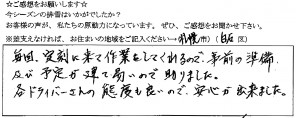 ☆ご感想をお願いします☆
今シーズンの排雪はいかがでしたか？
お客様の声が、私たちの原動力になっています。ぜひ、ご感想をお聞かせ下さい。
※差支えなければ、お住まいの地域をご記入ください→（札幌市）（白石区）
毎回、定刻に来て作業をしてくれるので、事前の準備
及び予定が建て易いので助りました。
各ドライバーさんの態度も良いので、安心が出来ました。